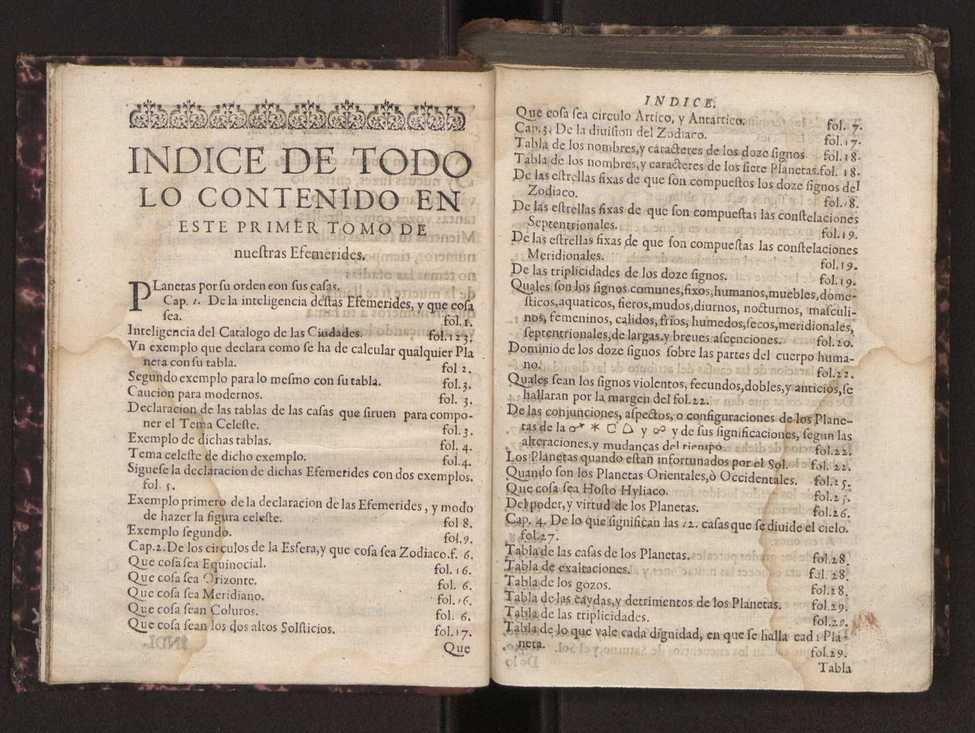 INDICE DE TODO
LO CONTENIDO EN
ESTE PRIMER TOMO DE
nueſtras Efemerides.
PLanetas por ſu orden con sus caſas.
Cap. 1. De la inteligencia deſtas Efemerides, y que coſa
ſea. fol. 1.
Inteligencia del Catalogo de las Ciudades. fol. 123.
Vn exemplo que declara como ſe ha de calcular qualquier Pla
neta con ſu tabla. fol 2.
Segundo exemplo para lo meſmo con ſu tabla. fol. 3.
Caucion para modernos. fol. 3.
Declaracion de las tablas de las caſas que ſiruen para compo-
ner el Tema Celeſte. fol. 3.
Exemplo de dichas tablas. fol. 4.
Tema celeſte de dicho exemplo. fol. 4.
Sigueſe la declaracion de dichas Efemerides con dos exemplos.
fol. 5.
Exemplo primero de la declaracion de las Efemerides, y modo
de hazer la figura celeſte. fol 8.
Exemplo ſegundo. fol. 9.
Cap. 2. De los circulos de la Eſfera, y que coſa ſea Zodiaco. f. 6.
Que coſa ſea Equinocial. fol. 16.
Que coſa ſea Orizonte. fol. 6.
Que coſa ſea Meridiano. fol. 16.
Que coſa ſean Coluros. fol. 6.
Que coſa ſean los dos altos Solſticios. fol. 17.
Que
INDICE.
Que coſa ſea circulo Artico, y Antartico. fol. 7.
Cap. 3. De la diuiſion del Zodiaco. fol. 17.
Tabla de los nombres, y caracteres de los doze signos fol. 18.
Tabla de los nombres, y caracteres de los ſiete Planetas. fol. 18.
De las eſtrellas fixas de que ſon compueſtos los doze ſignos del
Zodiaco. fol. 18.
De las eſtrellas fixas de que ſon compueſtas las conſtelaciones
Septentrionales. fol. 19.
De las eſtrellas fixas de que ſon compueſtas las conſtelaciones
Meridionales. fol. 19.
De las triplicidades de los doze ſignos. fol. 19.
Quales ſon los ſignos comunes, fixos, humanos, muebles, dome-
ſticos, aquaticos, fieros, mudos, diurnos, nocturnos, maſculi-
nos, femeninos, calidos, frios, humedos, ſecos, meridionales,
ſeptentrionales, de largas, y breues aſcenciones. fol. 20.
Dominio de los doze ſignos ſobre las partes del cuerpo huma-
no. fol. 22.
Quales ſean los ſignos violentos, fecundos, dobles, y anticios, ſe
hallaran por la margen del fol. 22.
De las conjunciones, aſpectos, o configuraciones de los Plane-
tas de la ☌ ✶ □ △ y ☍ y de sus ſignificaciones, ſegun las
alteraciones, y mudanças del tiempo. fol. 22.
Los Planetas quando eſtan infortunados por el Sol. fol. 22.
Quando ſon los Planetas Orientales, ò Occidentales. fol. 25.
Que coſa ſea Hoſto Hyliaco. fol. 25.
Del poder, y virtud de los Planetas. fol. 26.
Cap. 4. De lo que ſignifican las 12. caſas que ſe diuide el cielo.
fol. 27.
Tabla de las caſas de los Planetas. fol. 28.
Tabla de exaltaciones. fol. 28.
Tabla de los gozos. fol. 28.
Tabla de las caydas, y detrimentos de los Planetas. fol. 29.
Tabla de las triplicidades. fol. 29.
Tabla de lo que vale cada dignidad, en que ſe halla cada Pla-
neta. fol. 29.
Tabla